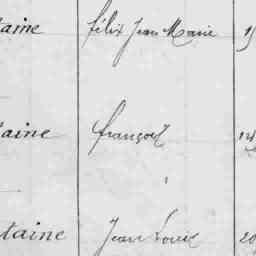 taine félix Jean Marie 15
taine françois 14
ntaine Jean Louis 20